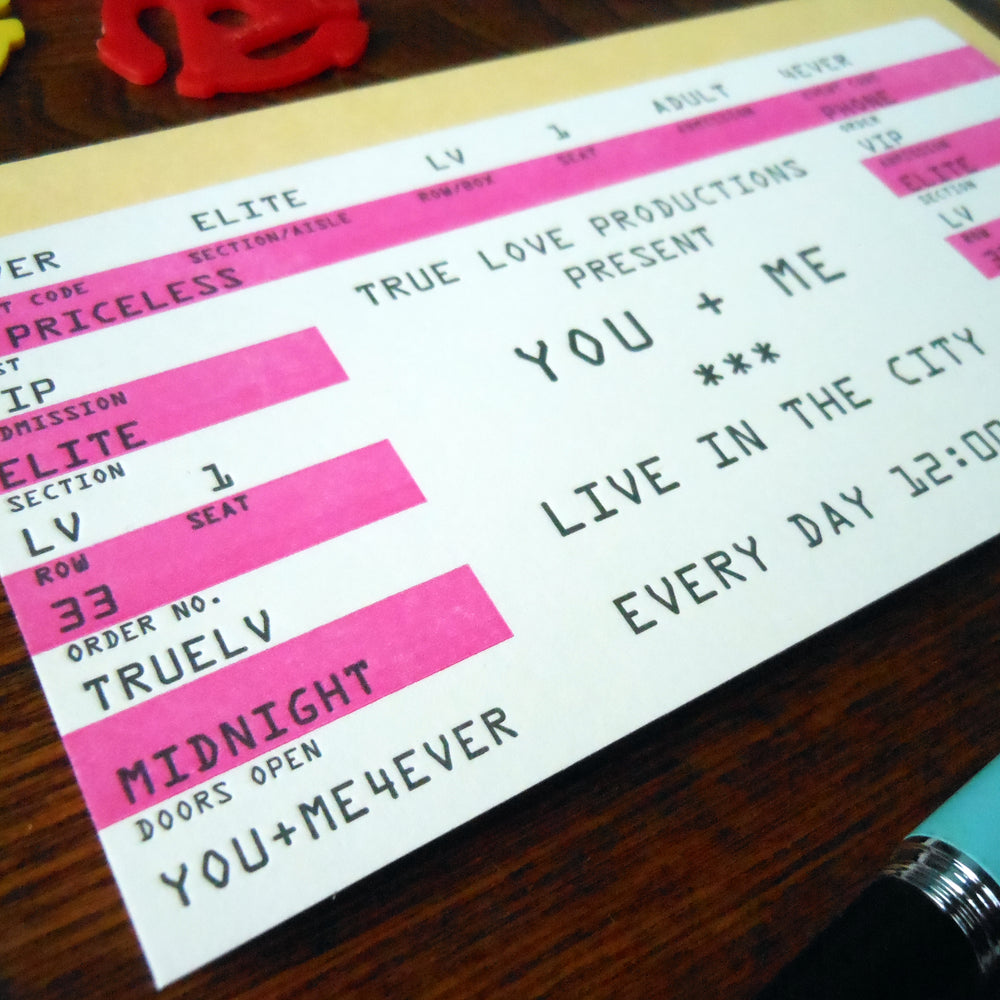 ELITE LV 1 ADULT 4EVER
SECTION/AISLE ROW/BOX SEAT ADMISSION EVENT CODE
PRICELESS
VIP
ADMISSION
ELITE
SECTION
LV 1
ROW SEAT
33
ORDER NO.
TRUELV
MIDNIGHT
DOORS OPEN
YOU+ME4EVER
TRUE LOVE PRODUCTIONS
PRESENT
YOU + ME
***
LIVE IN THE CITY
EVERY DAY 12:00
PHONE
ORDER
VIP
ADMISSION
ELITE
SECTION
LV
ROW